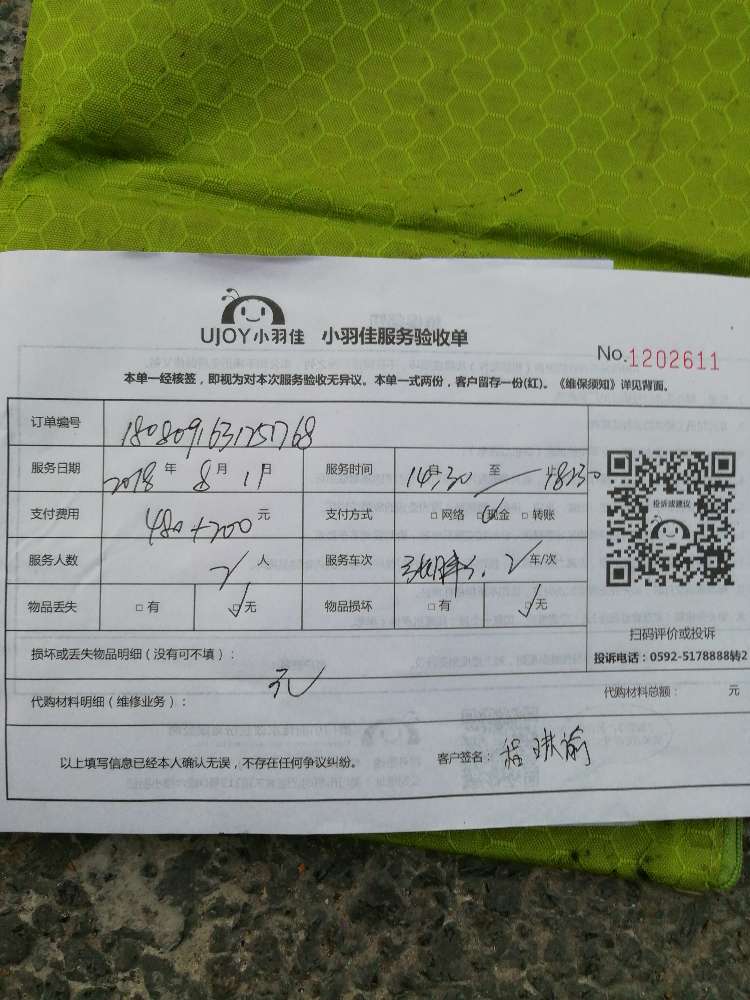 UJOY小羽佳 小羽佳服务验收单
No.1202611
本单一经核签，即视为对本次服务验收无异议。本单一式两份，客户留存一份(红)。《维保须知》详见背面。
订单编号
服务日期 2018 年 8 月 11日 服务时间 14:30 至 18:30
支付费用 480+200 元 支付方式 □ 网络 □ 现金 □ 转账
服务人数 2 人 服务车次 2 车/次
物品丢失 □ 有 □ 无 物品损坏 □ 有 □ 无
投诉或建议
扫码评价或投诉
投诉电话：0592-5178888转2
损坏或丢失物品明细（没有可不填）：
无
代购材料明细（维修业务）： 代购材料总额： 元
以上填写信息已经本人确认无误，不存在任何争议纠纷。 客户签名：